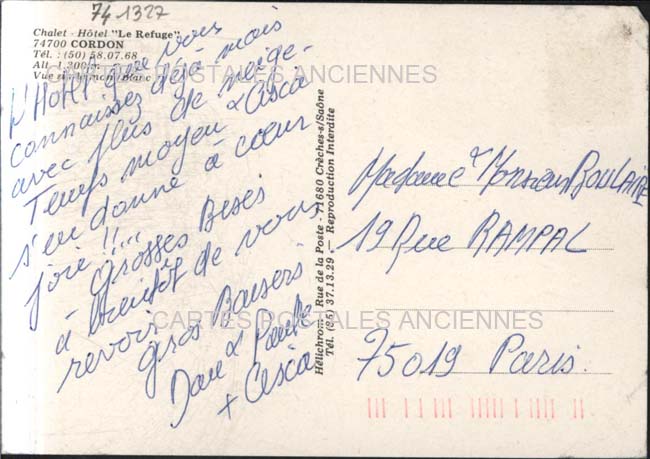 74 1327
Chalet - Hôtel "Le Refuge"
74700 CORDON
Tél. : (50) 58.07.68
Alt. 1.200 m
Vue sur le mont Blanc
L'Hotel que vous
connaissez déjà mais
avec plus de neige -
Temps moyen & Cisca
s'en donne à cœur
joie !!...
- Grosses Bises
à bientôt de vous
revoir.
Gros Baisers
Dave & Paule
+ Cisca
Héliochrom, Rue de la Poste - 71680 Crêches-s/Saône
Tél. (85) 37.13.29. — Reproduction Interdite
Madame & Monsieur BOULAIRE
19 Rue RAMPAL
75019 Paris.
CARTES POSTALES ANCIENNES
CARTES POSTALES ANCIENNES